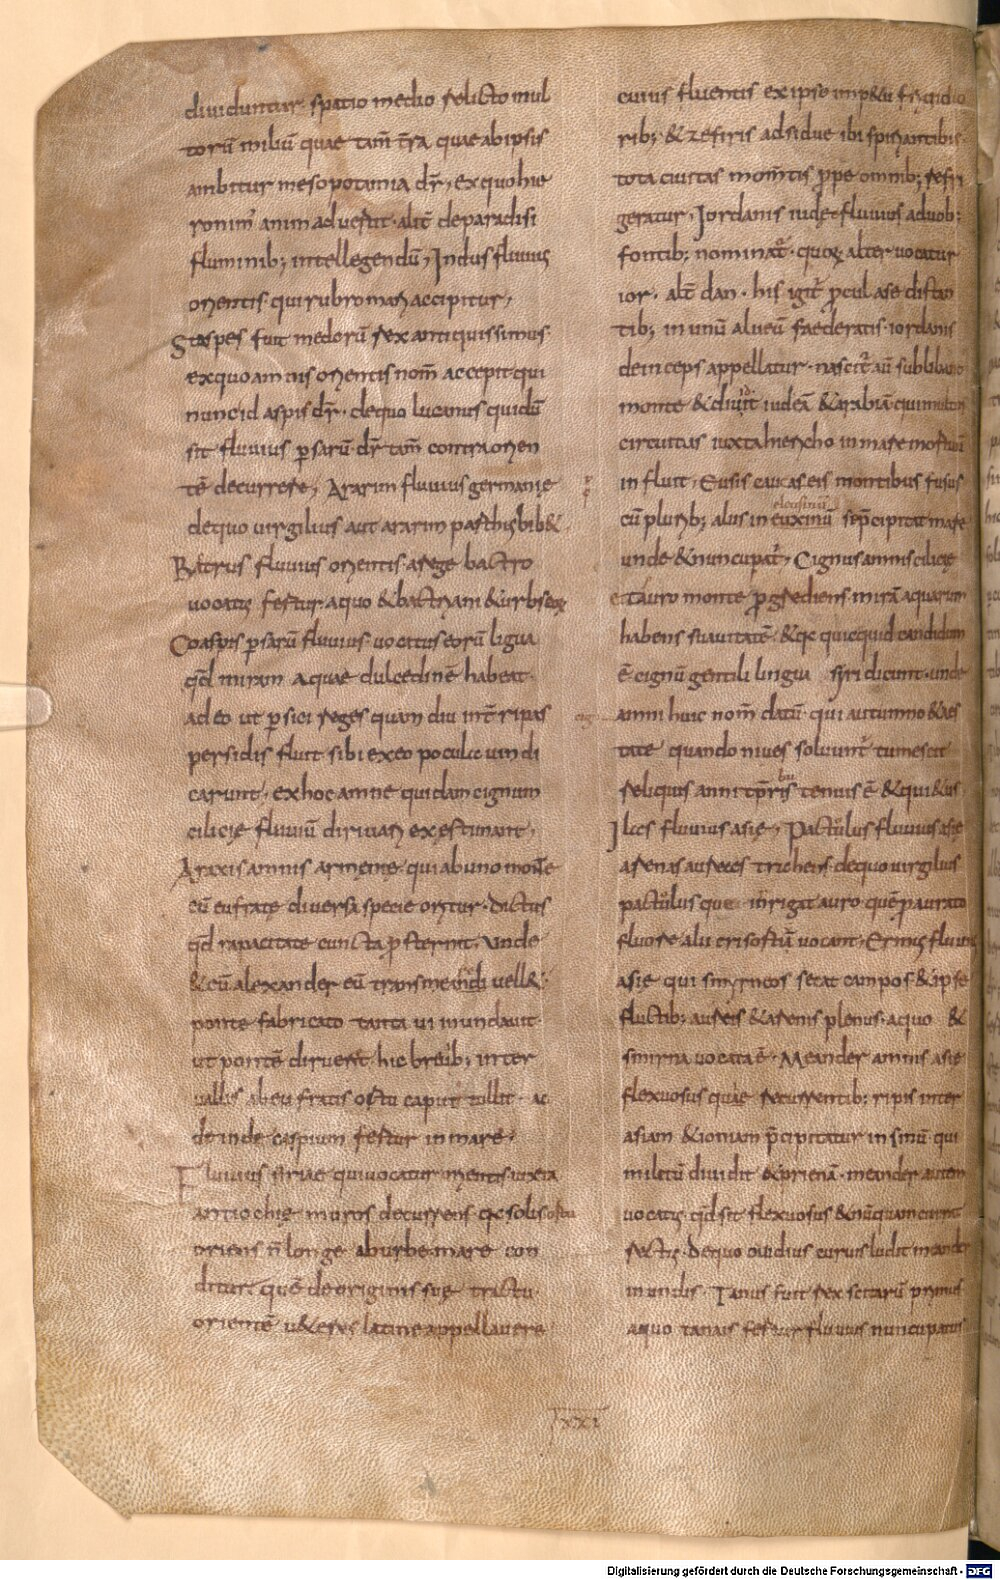 diuiduntur. spatio medio relicto mul
torū miliū quae tam̄ t̄ra quae ab ipsis
ambitur mesopotamia dr̄, ex quo hie
ronim' animaduertit. alit̄ de paradisi
fluminib; intellegendū, Indus fluuius
orientis qui rubro mari accipitur,
Staspes fuit medorū rex antiquissimus
ex quo amnis orientis nom̄ accepit qui
nunc idaspis dr̄. de quo lucanus quidū
sit fluuius ꝑsarū dr̄ tam̄ contra orien
tē decurrere, Ararim fluuius germanię
de quo uirgilius aut ararim parthis bib&
Bactrus fluuius orientis. a rege bactro
uocatus fertur. a quo & bactriani & urbs eoꝝ
Coaspis ꝑsarū fluuius uocatus eorū ligua
qd̄ miram aquae dulcedinē habeat
adeo ut ꝑsici reges quam diu int̄ ripas
persidis fluit. sibi ex eo pocula uindi
carunt, ex hoc amne quidam cignum
cilicię fluuiū diriuari exestimant,
Araxis amnis armenię. qui ab uno monte
cū eufrate diuersa specie oritur. dictus
qd̄ rapacitate cuncta ꝓsternit. unde
& cū alexander eū transmeandi uell&
ponte fabricato tanta ui inundauit
ut pontē dirueret. hic breuib; inter
uallis ab eufratis ortu caput tollit. ac
deinde caspium fertur in mare.
Fluuius siriae qui uocatur orientis. iuxta
antiochię muros decurrens. qc̄ solis ortu
oriens n̄ longe ab urbe mare con
ditur. quē de originis suę tractu
orientē u&eres latine appellauere
cuius fluentis ex ipso imp&u frigidio
rib; & zefiris adsidue ibi spirantibus
tota ciuitas mom̄tis ꝓpe omnib; refri
geratur, Jordanis iudę fluuius a duob;
fontib; nominat̄. quoꝝ alter uocatur
ior. alt̄ dan. his igit̄ ꝓcul a se distan
tib; in unū alueū faederatis. iordanis
deinceps appellatur. nascit̄ aū sub libano
monte & diuidit iudeā & arabiā qui multis
circuitus iuxta hiericho in mare mortuū
influit, Eusis caucaseis montibus fusus
eleusinū
cū plurib; alius in euxinū se p̄cipitat mare
unde & nuncupat̄, Cignus amnis cilicię
e tauro monte ꝓgrediens. mirā aquarum
habens suauitatē. & qc̄ quicquid candidum
ē cignū gentili lingua siri dicunt. unde
amni huic nom̄ datū. qui autumno & aes
tate quando niues soluunt̄ tumescit
reliquis anni tp̄ribus tenuis ē & qui&us,
Ilces fluuius asię, Pactulus fluuius asię
arenas aureas trahens. de quo uirgilius
pactulusque inrigat auro. quē ꝓ aurato
fluore alii crisorrā uocant, Ermus fluuius
asię qui smyrneos secat campos. & ipse
fluctib; aureis & arenis plenus. a quo &
smirna uocata ē. Meander amnis asię
flexuosus quae recurrentib; ripis inter
asiam & ioniam p̄cipitatur in sinū qui
miletū diuidit & prienā. meander autem
uocatus qd̄ sit flexuosus & nūquam currit
rectus. De quo ouidius curuis ludit meander
in undis. Tanus fuit rex scitarū primus
a quo tanais fertur fluuius nuncupatus
XXI
Digitalisierung gefördert durch die Deutsche Forschungsgemeinschaft - DFG